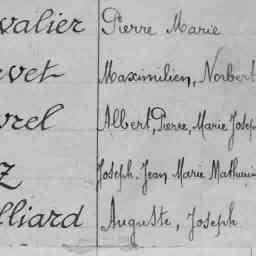 valier Pierre Marie
vet Maximilien, Norbert
rel Albert, Pierre, Marie Josep
z Joseph Jean Marie Mathurin
lliard Auguste, Joseph